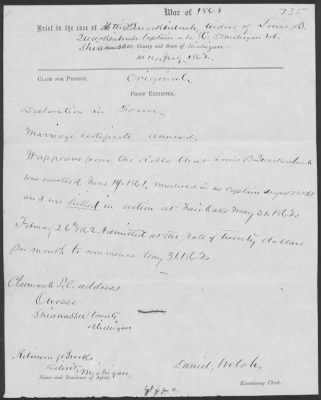 War of 1861 735
Brief in the case of Mattie Quackenbush, widow of Louis B.
Quackenbush Captain 5 Michigan Vol.
Shiawassee County and State of Michigan.
July, 1862
CLAIM FOR PENSION. Original
PROOF EXHIBITED.
Declaration in Form.
Marriage certificate annexed.
It appears from the Rolls that Louis B Quackenbush
was enrolled June 19, 1861, mustered in as Captain August 28 1861
and was killed in action at Fair Oaks May 31, 1862
Admitted at the rate of twenty dollars
per month to commence May 31, 1862
Claimants P.O. address
Owosso
Shiawassee County
Michigan
Detroit, Michigan
Name and Residence of Agent.
Daniel Welch,
Examining Clerk.